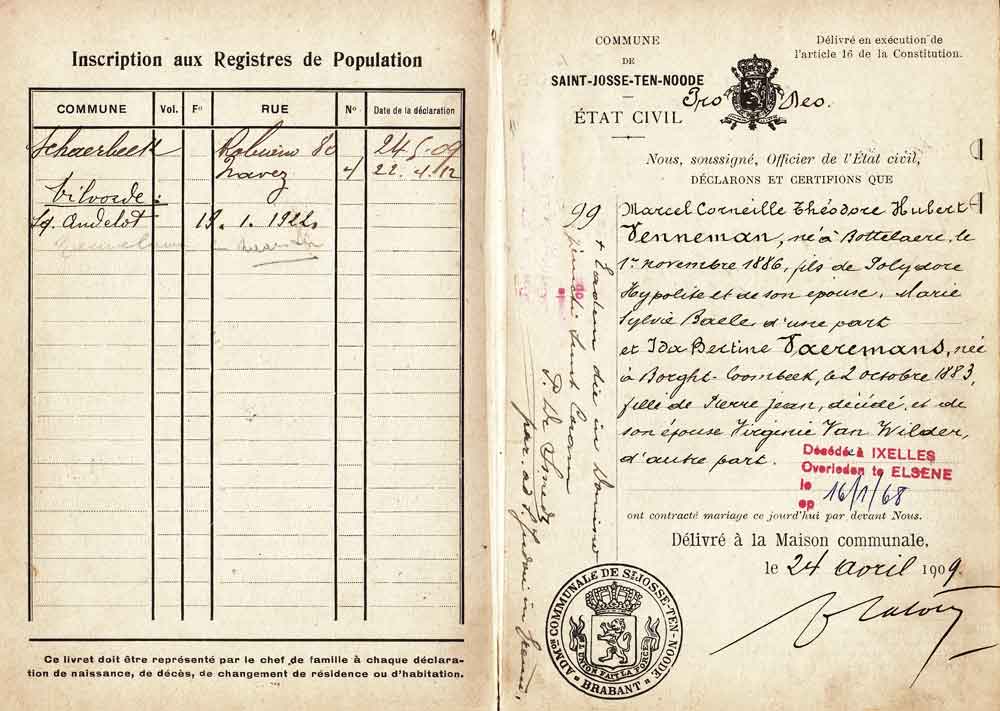 Inscription aux Registres de Population
COMMUNE Vol. Fº RUE Nº Date de la déclaration
Schaerbeek 80 24-5-09
Navez 4 22.4.12
Vilvorde :
Sq. Andelot 19.1.
Ce livret doit être représenté par le chef de famille à chaque déclara-
tion de naissance, de décès, de changement de résidence ou d'habitation.
COMMUNE
DE
SAINT-JOSSE-TEN-NOODE
ÉTAT CIVIL
Délivré en exécution de
l'article 16 de la Constitution.
Pro Deo.
Nous, soussigné, Officier de l'État civil,
DÉCLARONS ET CERTIFIONS QUE
99
Marcel Corneille Théodore Hubert
Venneman, né à Bottelaere, le
1r novembre 1886, fils de Polydore
Hypolite et de son épouse, Marie
Sylvie Baele, d'une part
et Ida Bertine Vaeremans, née
à Borght-Coombeek, le 2 octobre 1883,
fille de Pierre Jean, décédé, et de
son épouse Virginie Van Wilder,
d'autre part.
Décédée à IXELLES
Overleden te ELSENE
le
op 16/1/68
ont contracté mariage ce jourd'hui par devant Nous.
Délivré à la Maison communale,
le 24 avril 1909.
ADMon COMMUNALE DE ST JOSSE-TEN-NOODE
L'UNION FAIT LA FORCE
BRABANT
+ eadem die in Domino
P. De Smedt